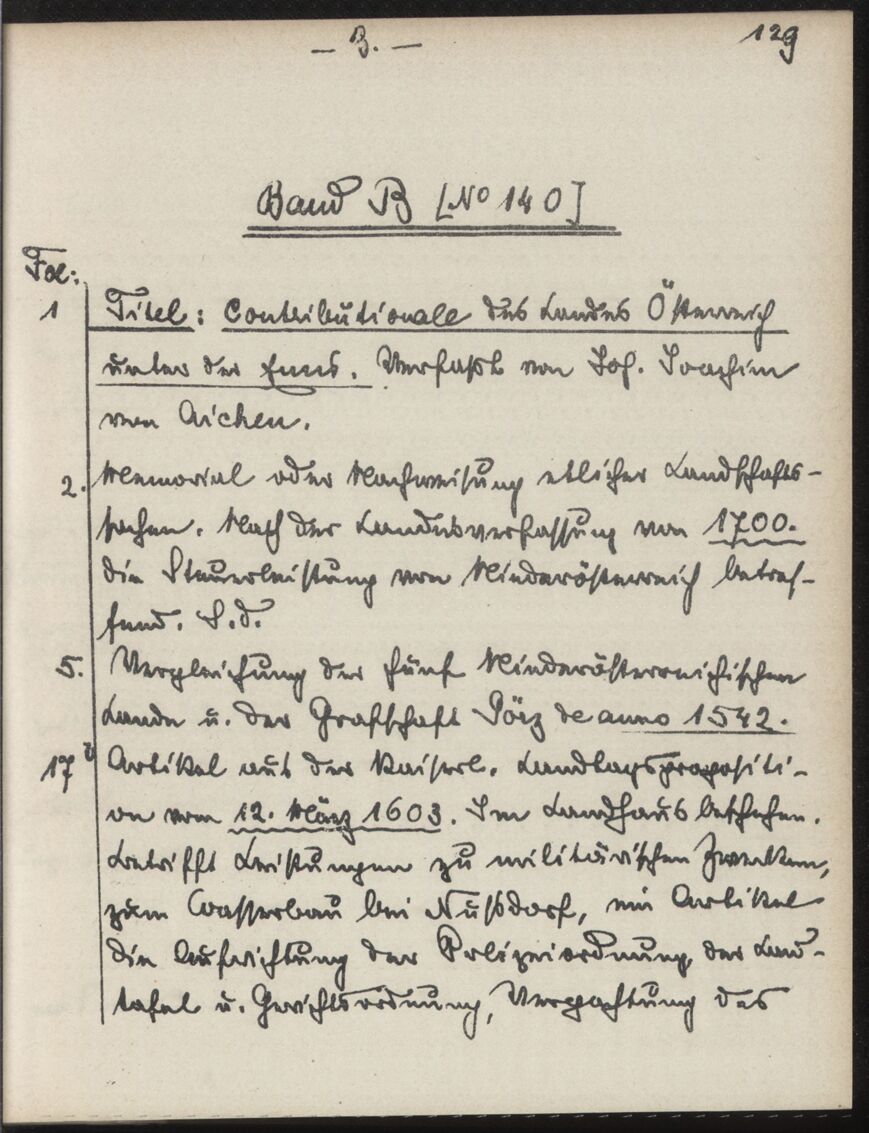 – 3. –
129
Band B [No 140]
Fol:
1 Titel: Contributionale des Landes Österreich
unter der Enns. Verfaßt von Joh. Joachim
von Aichen.
2. Memorial oder Nachweisung etlicher Landschafts-
sachen. Nach der Landesverfassung von 1700.
die Steuerleistung von Niederösterreich betref-
fend. S.d.
5. Vergleichung der fünf Niederösterreichischen
Lande u. der Grafschaft Görz de anno 1542.
17v Artikel aus der Kaiserl. Landtagspropositi-
on vom 12. März 1603. Im Landhaus beschehen.
Betrifft Leistungen zu militärischen Zwecken,
zum Wasserbau bei Nußdorf, ein Artikel
die Aufrichtung der Polizeiordnung, der Land-
tafel u. Gerichtsordnung, Verpachtung des